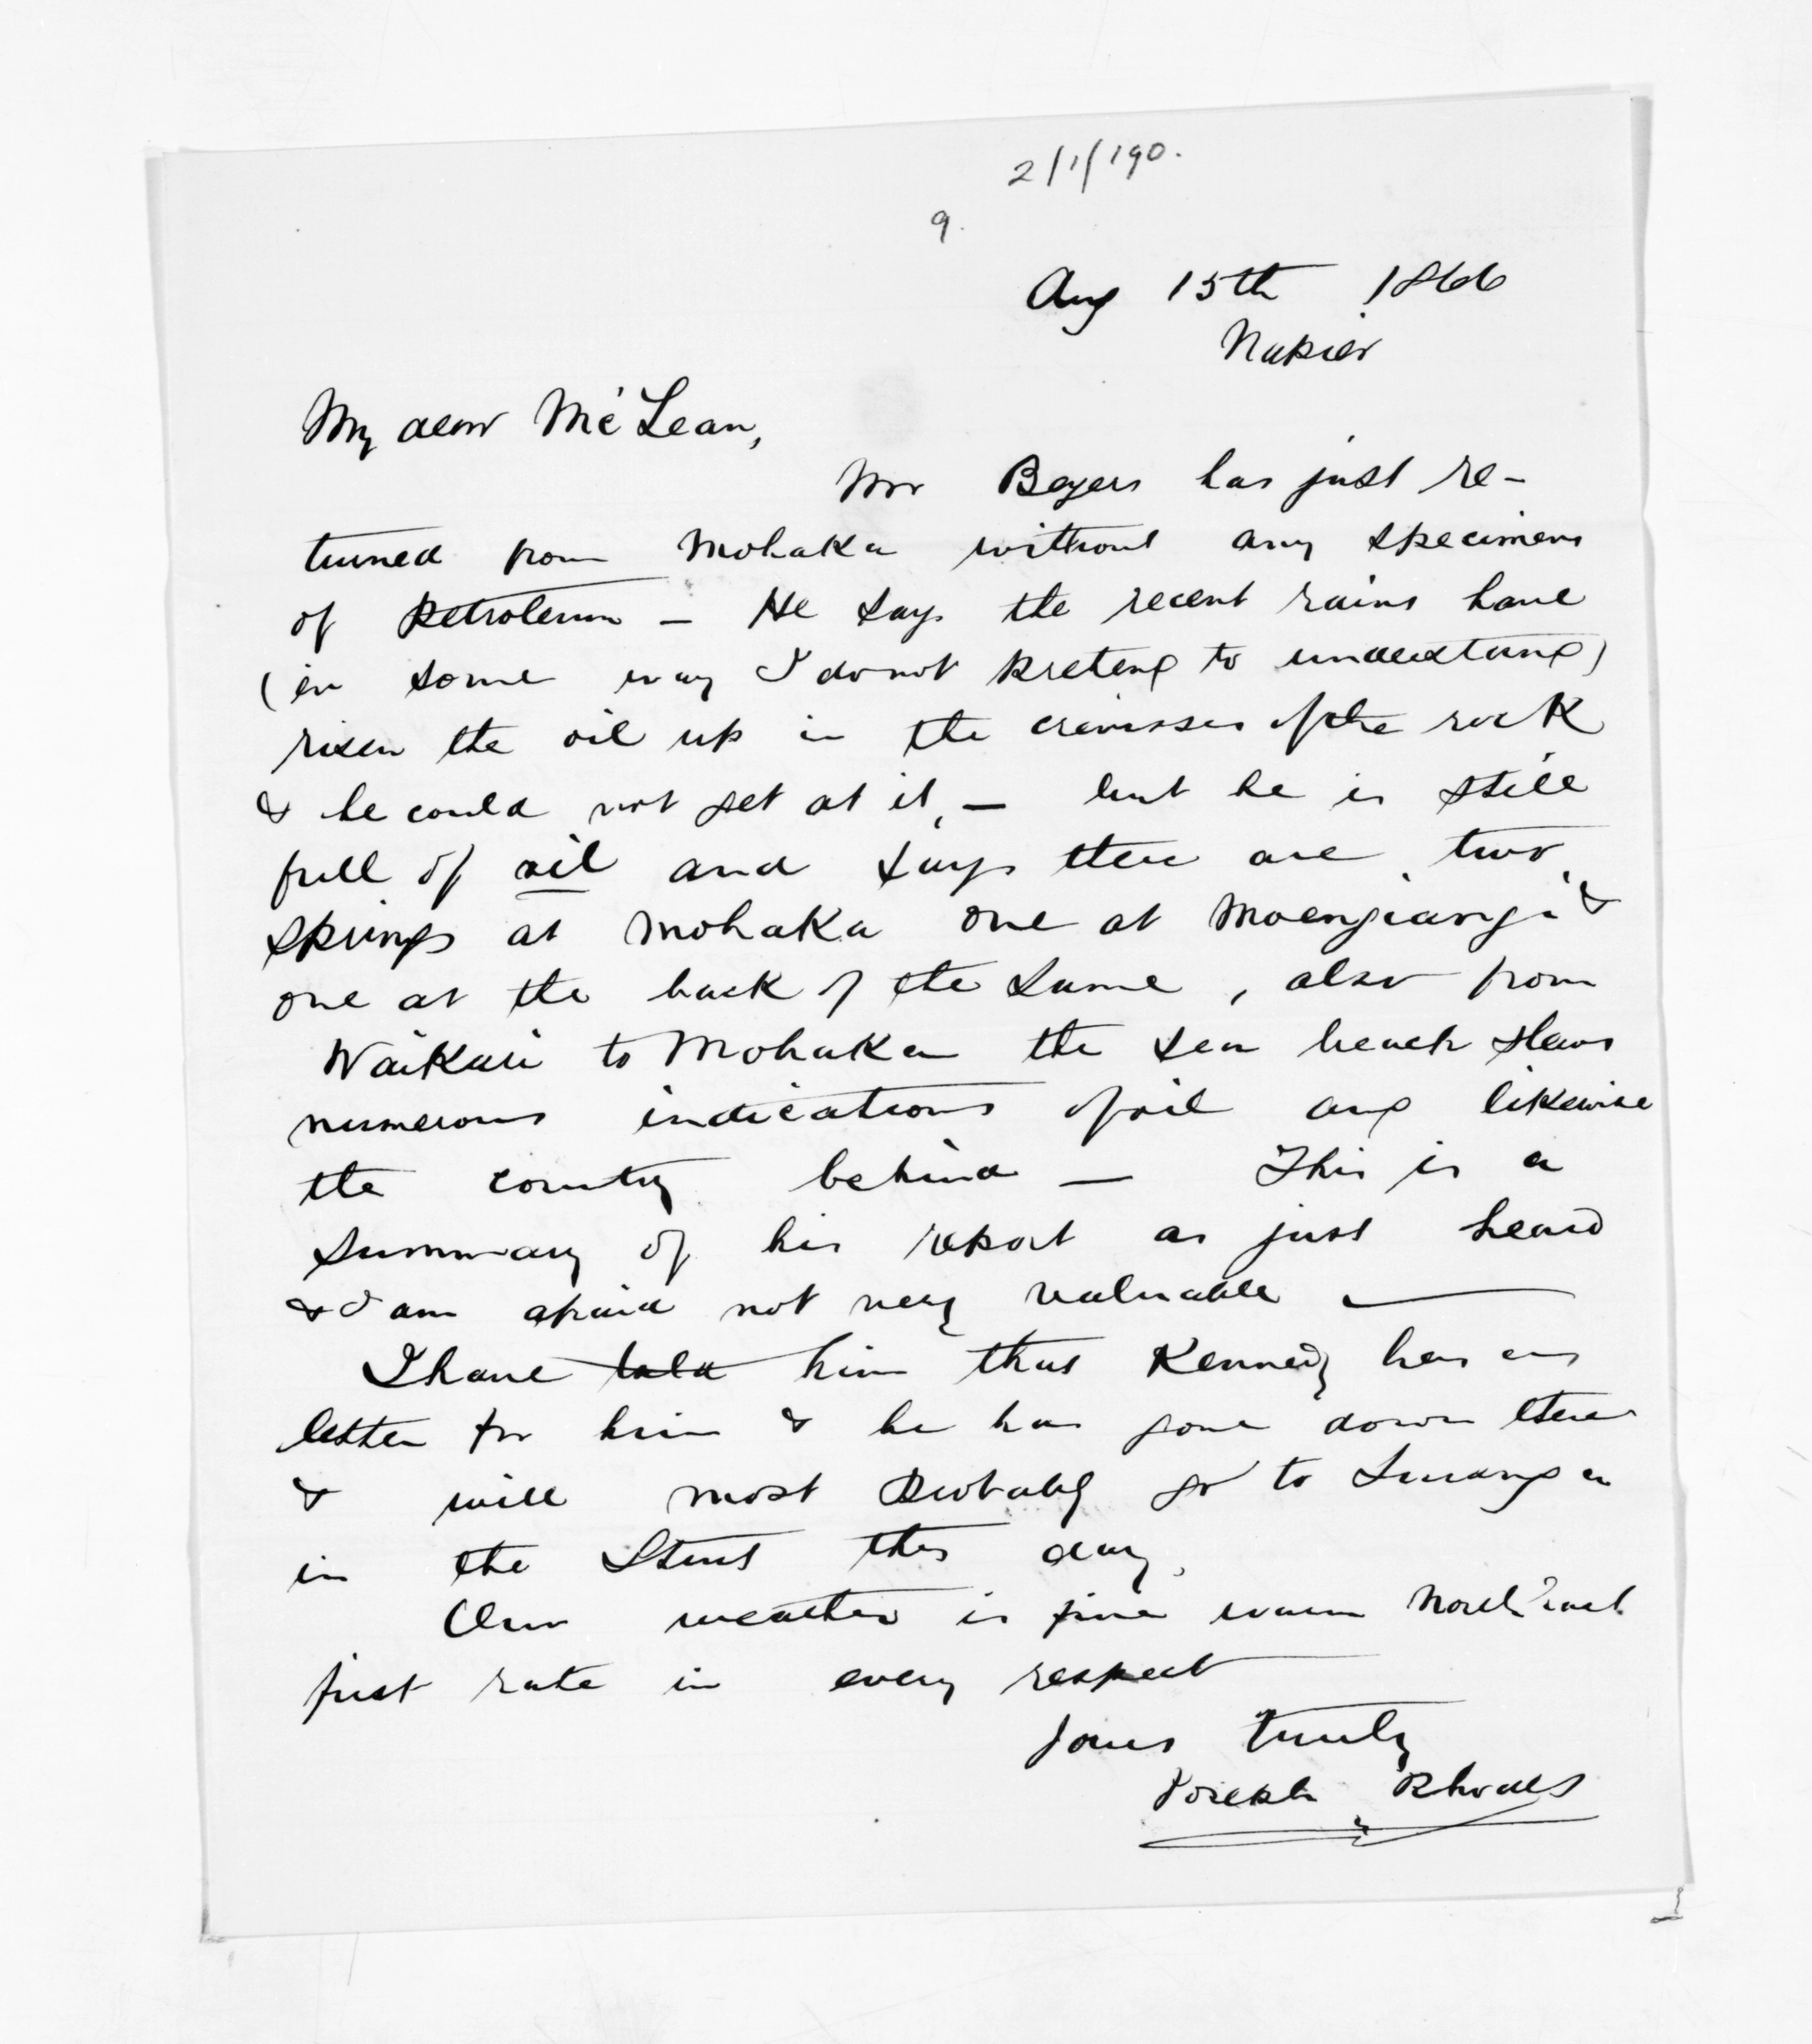 2/1/190.
9.
Aug 15th 1866
Napier
My dear McLean,
Mr Beyers has just re-
turned from Mohaka without any specimens
of Petroleum - He says the recent rains have
(in some way I do not pretend to understand)
risen the oil up in the crevisses of the rock
& he could not get at it, - but he is still
full of oil and says there are two
springs at Mohaka one at Moengiangi &
one at the back of the same, also from
Waikari to Mohaka the sea beach shews
numerous indications of oil and likewise
the country behind - This is a
summary of his report as just heard
& I am afraid not very valuable -
I have told him that Kennedy has a
letter for him & he has gone down there
& will most probably go to Turanga
in the Sturt this day,
Our weather is fine warm North East
first rate in every respect
Yours truly
Joseph Rhodes